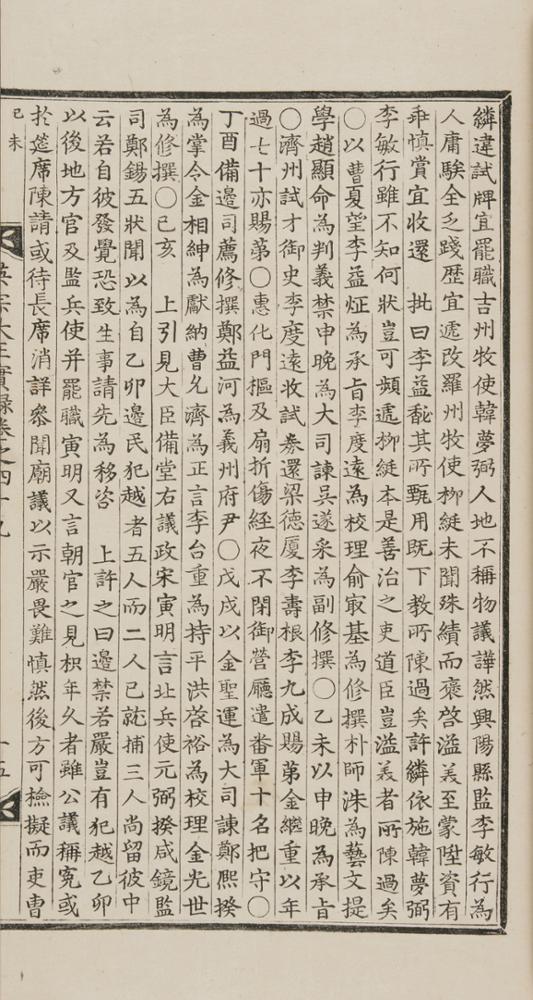 縯違試牌宜罷職吉州牧使韓夢弼人地不稱物議譁然興陽縣監李敏行為
人庸騃全乏踐歷宜遞改羅州牧使柳綎未聞殊績而褒啓溢美至蒙陞資有
乖愼賞宜收還 批曰李益馝其所甄用旣下敎所陳過矣許繗依施韓夢弼
李敏行雖不知何狀豈可頻遞柳綎本是善治之吏道臣豈溢美者所陳過矣
○以曹夏望李益炡為承旨李度遠為校理兪㝡基為修撰朴師洙為藝文提
學趙顯命為判義禁申晚為大司諫吳遂采為副修撰○乙未以申晚為承旨
○濟州試才御史李度遠收試券還梁德廈李壽根李九成賜第金繼重以年
過七十亦賜第○惠化門樞及扇折傷經夜不閉御營廳遣番軍十名把守○
丁酉備邊司薦修撰鄭益河為義州府尹○戊戌以金聖運為大司諫鄭熙揆
為掌令金相紳為獻納曹允濟為正言李台重為持平洪啓裕為校理金光世
為修撰○己亥 上引見大臣備堂右議政宋寅明言北兵使元弼揆咸鏡監
司鄭錫五狀聞以為自乙卯邊民犯越者五人而二人已就捕三人尚留彼中
云若自彼發覺恐致生事請先為移咨 上許之曰邊禁若嚴豈有犯越乙卯
以後地方官及監兵使并罷職寅明又言朝官之見枳年久者雖公議稱寃或
於筵席陳請或待長席消詳參聞廟議以示嚴畏難愼然後方可檢擬而吏曹
己未
英宗大王實錄卷之四十九
十五